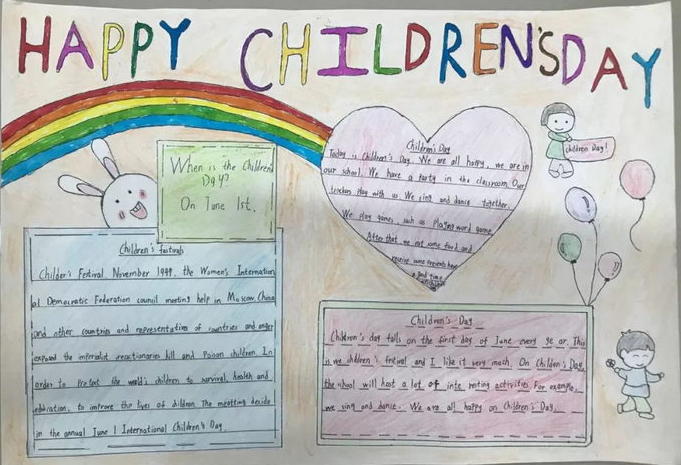 HAPPY CHILDREN'S DAY
When is the Children's
Day?
On June 1st.
Children's Day
Today is Children's Day. We are all happy, we are in
our school. We have a party in the classroom. Our
teachers play with us. We sing and dance together.
We play games, such as playing word game.
After that we eat some food and
receive some presents have
a good time
children Day!
Children's festivals
Childer's Festival. November 1949, the Women's Internation
al Democratic Federation council meeting help in Moscow. China
and other countries and representatives of countries and anger
exposed the imperialist reactionaries kill and Poison children. In
order to Protect the world's children to survival, health and
education, to improve the lives of children. The meetting decide
in the annual June 1 International Children's Day.
Children's Day
Children's day falls on the first day of June every ye ar. This
is we children's fretival and I like it very much. On Children's Day,
the shool will host a lot of inte resting activities. For example,
we sing and dance. We are all happy on Children's Day.